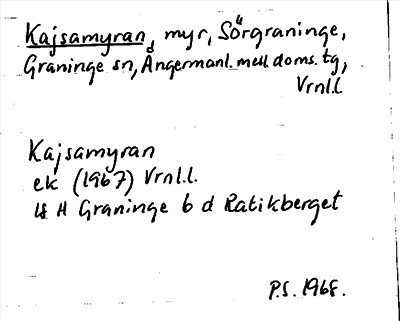 Kajsamyran, myr, Sörgraninge,
Graninge sn, Ångermanl. mell. doms. tg,
Vrnl.l
Kajsamyran
ek (1967) Vrnl.l.
H Graninge b d Ratikberget
P.S. 1968.